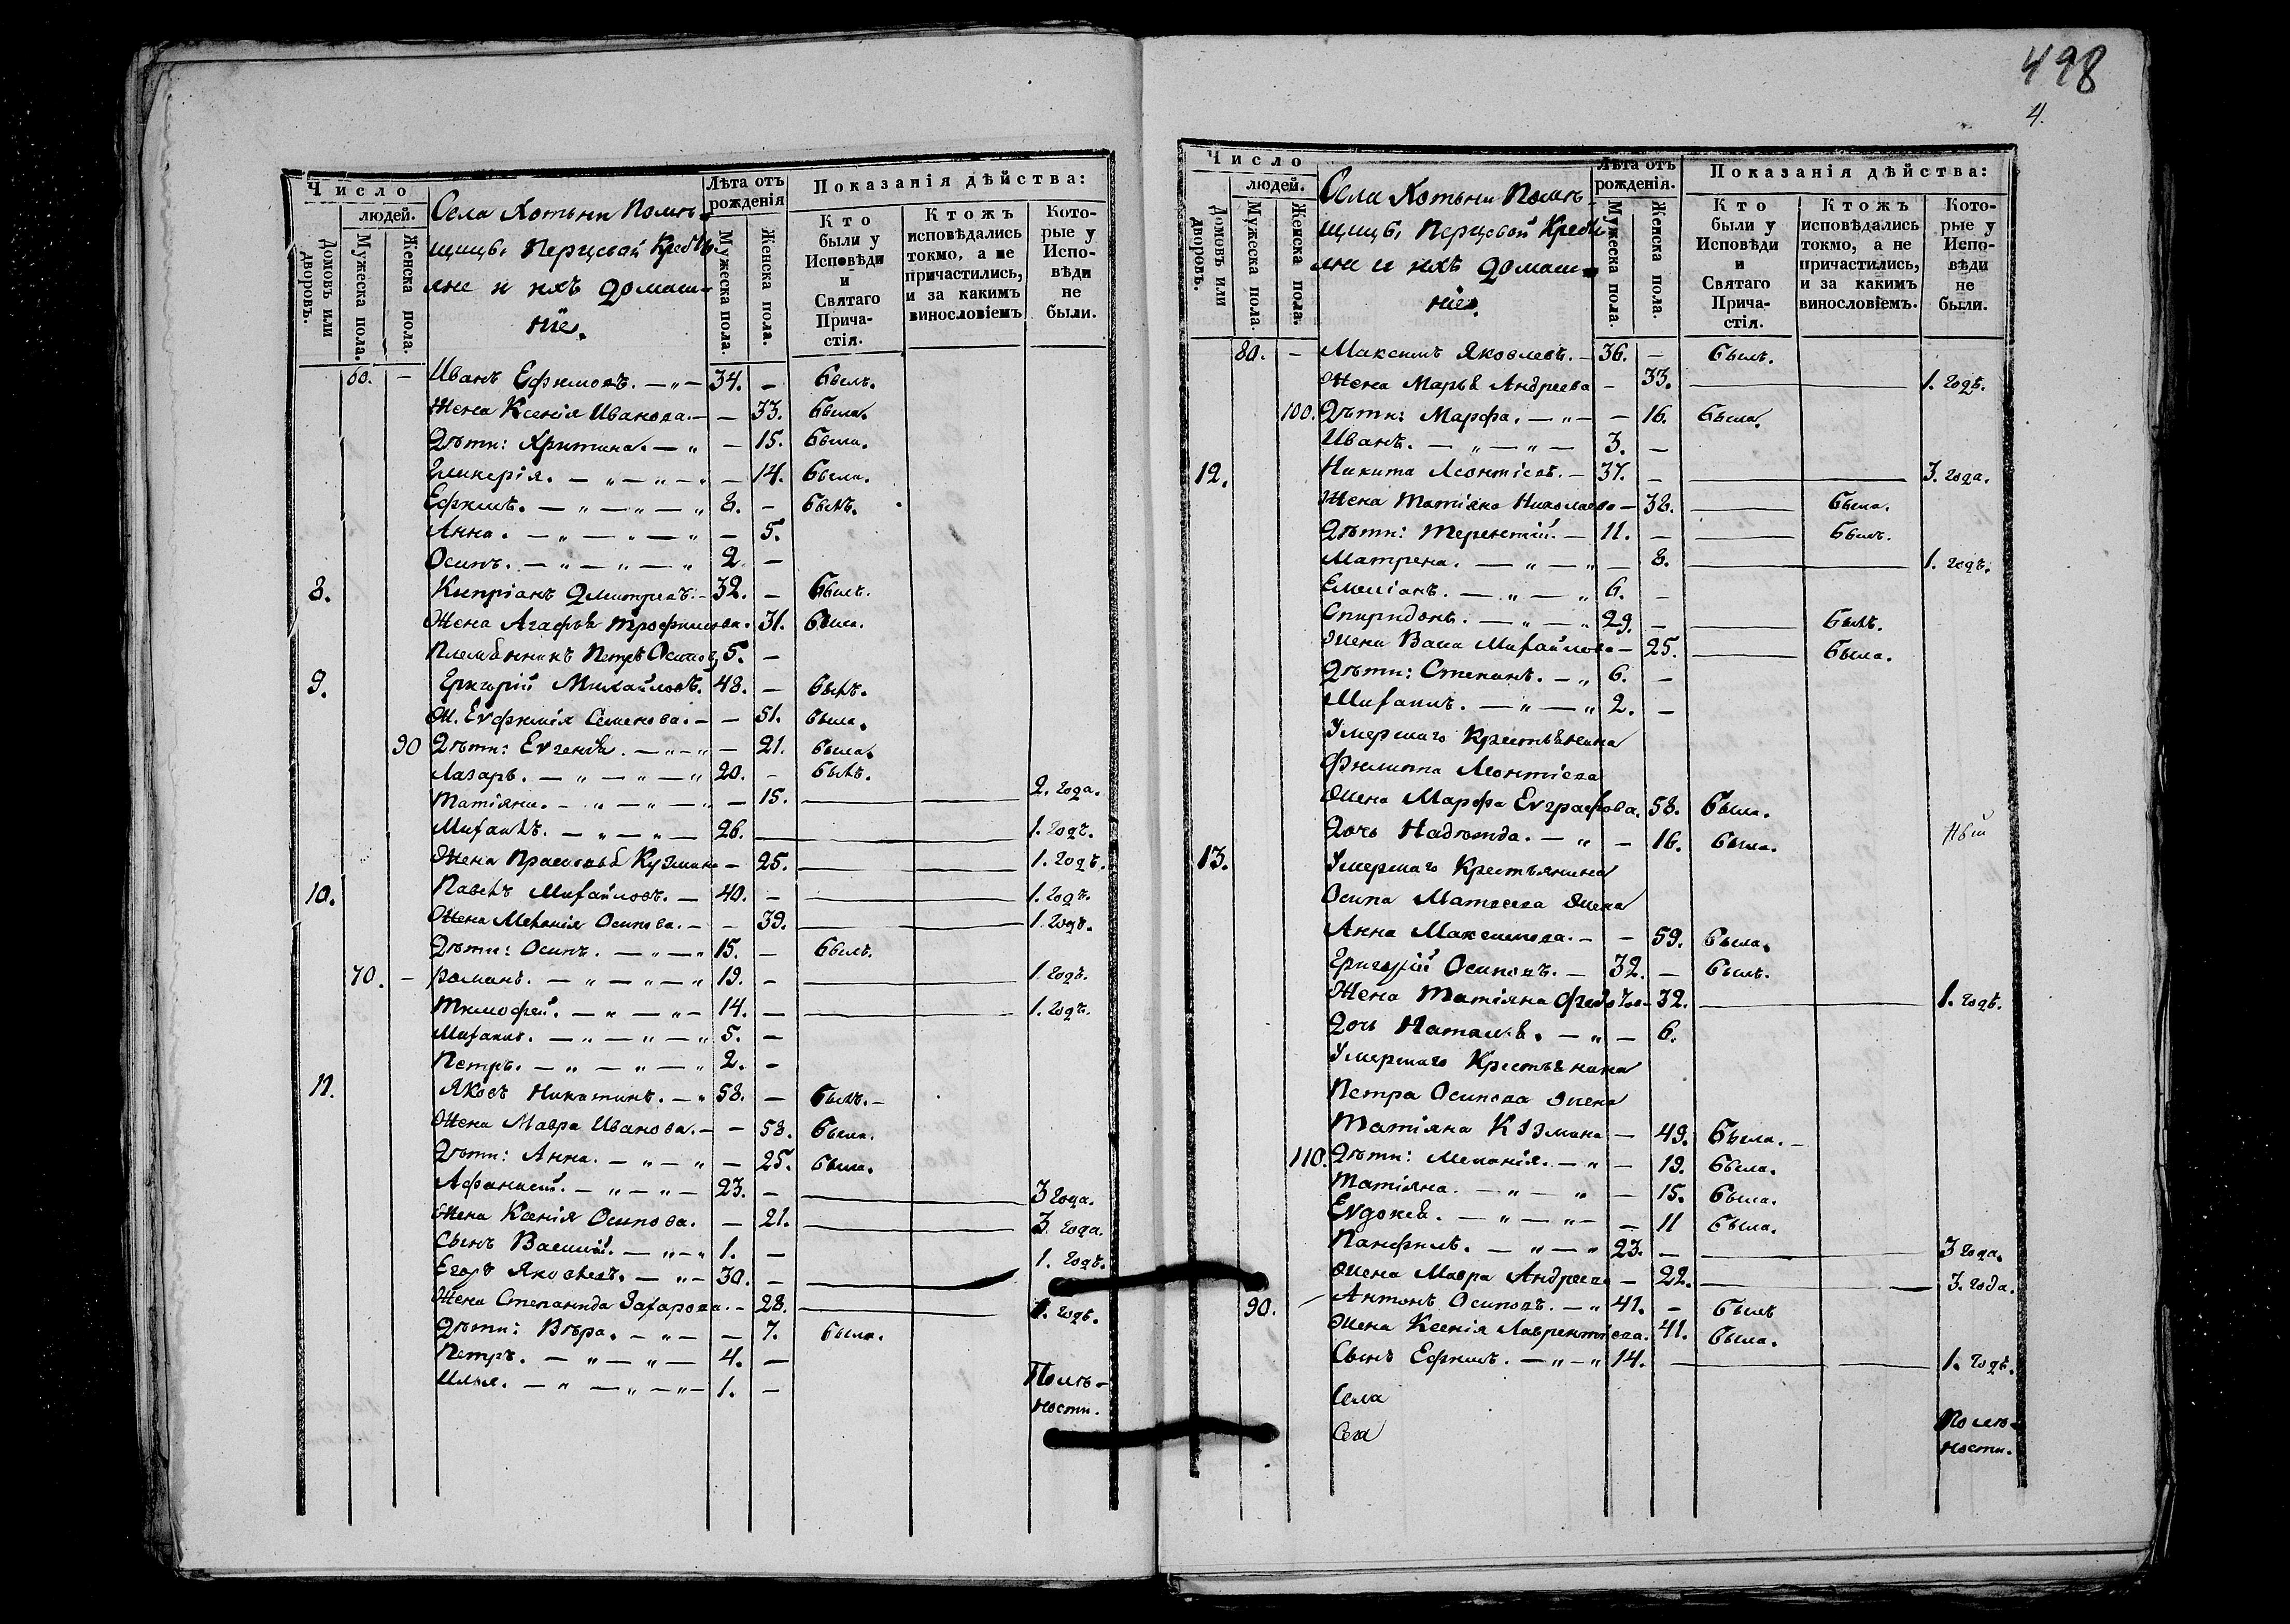 498
4.
Число
людей.
Домовъ или дворовъ.
Мужеска пола.
Женска пола.
Села Хотьни Помѣ-
щицы Перцовой Кресть-
яне и ихъ домаш-
ніе.
Лѣта отъ
рожденія
Мужеска пола.
Женска пола.
Показанія дѣйства:
Кто
были у
Исповѣди
и
Святаго
Прича-
стія.
Ктожъ
исповѣдались
токмо, а не
причастились,
и за какимъ
винословіемъ
Кото-
рые у
Испо-
вѣди
не
были.
60. – Иванъ Ефимовъ. — „ — 34. – былъ.
Жена Ксенія Иванова. — – 33. была.
Дѣти: Христина. — „ – 15. была.
Гликерія. — „ — „ — „ – 14. была.
Ефимъ. — „ — „ — „ 8. – былъ.
Анна. — „ — „ — „ – 5.
Осипъ. — „ — „ — „ 2. –
8. Кипріанъ Дмитріевъ. – 32. – былъ.
Жена Агафья Трофимова. 31. была.
Племянникъ Петръ Осиповъ 5. –
9. Григорій Михайловъ. 48. – былъ.
Ж. Евфимія Семенова. – – 51. была.
90 Дѣти: Евгенія. — „ — „ – 21. была.
Лазарь. — „ — „ — „ 20. – былъ.
Татіяна. — „ — „ — „ – 15. — — 2. года.
Михаилъ. — „ — „ — 26. — — 1. годъ.
Жена Прасковья Кузмина – 25. — — 1. годъ.
10. Павелъ Михайловъ. — 40. – — 1. годъ.
Жена Меланія Осипова. – – 39. — 1. годъ.
Дѣти: Осипъ. — „ — „ 15. – былъ.
70. – Романъ. — „ — „ — „ 19. – — 1. годъ.
Тимофей. — „ — „ — 14. – — 1. годъ.
Михаилъ. — „ — „ — „ 5. –
Петръ. — „ — „ — „ 2. –
11. Яковъ Никитинъ. — „ 58. – былъ. –
Жена Мавра Иванова. – – 58. была.
Дѣти: Анна. — „ — „ – 25. была.
Афанасій. — „ — „ — 23. – — 3 года.
Жена Ксенія Осипова. – 21. — 3. года.
Сынъ Василій. — „ — „ 1. –
Егоръ Яковлевъ. — „ — 30. – — 1. годъ.
Жена Степанида Захарова. – 28. — 1. годъ.
Дѣти: Вѣра. — „ — – 7. была.
Петръ. — „ — „ — 4. –
Илья. — „ — „ — „ — 1. –
По мѣ-
ности.
Число
людей.
Домовъ или дворовъ.
Мужеска пола.
Женска пола.
Села Хотьни Помѣ-
щицы Перцовой Кресть-
яне и ихъ домаш-
ніе.
Лѣта отъ
рожденія.
Мужеска пола.
Женска пола.
Показанія дѣйства:
Кто
были у
Исповѣди
и
Святаго
Прича-
стія.
Ктожъ
исповѣдались
токмо, а не
причастились,
и за какимъ
винословіемъ.
Кото-
рые у
Испо-
вѣди
не
были.
80. – Максимъ Яковлевъ. – 36. – былъ.
Жена Марья Андреева – 33. — 1. годъ.
100. Дѣти: Марфа. — „ — – 16. была.
Иванъ. — „ — „ — 3. –
12. Никита Леонтіевъ. – 37. – — 3. года.
Жена Татіяна Николаева – 38. — была.
Дѣти: Терентій. — 11. – — былъ.
Матрена. — „ — „ – 8. — 1. годъ.
Емеліанъ. — „ — „ 6. –
Спиридонъ. — „ — „ 29. – — былъ.
Жена Васса Михайлова – 25. — была.
Дѣти: Степанъ. — „ 6. –
Михаилъ. — „ — „ 2. –
Умершаго Крестьянина
Филиппа Леонтіева
Жена Марфа Евграфова. 58. была.
Дочь Надѣжда. — „ – 16. была.
13. Умершаго Крестьянина
Осипа Матвеева Жена
Анна Максимова. – – 59. была.
Григорій Осиповъ. – 32. – былъ.
Жена Татіяна Федотова – 32. — 1. годъ.
Дочь Наталья. — „ – 6.
Умершаго Крестьянина
Петра Осипова Жена
Татіяна Кузмина – 49. была. –
110. Дѣти: Меланія. — „ – 19. была.
Татіяна. — „ — „ – 15. была.
Евдокея. — „ — „ – 11 была.
Панфилъ. — „ — „ 23. – — 3 года.
Жена Мавра Андреева – 22. — 3. года.
90. – Антонъ Осиповъ. — „ 41. – былъ
Жена Ксенія Лаврентіева. 41. была.
Сынъ Ефимъ. — „ — „ 14. — — 1. годъ.
Села
По мѣ-
ности.